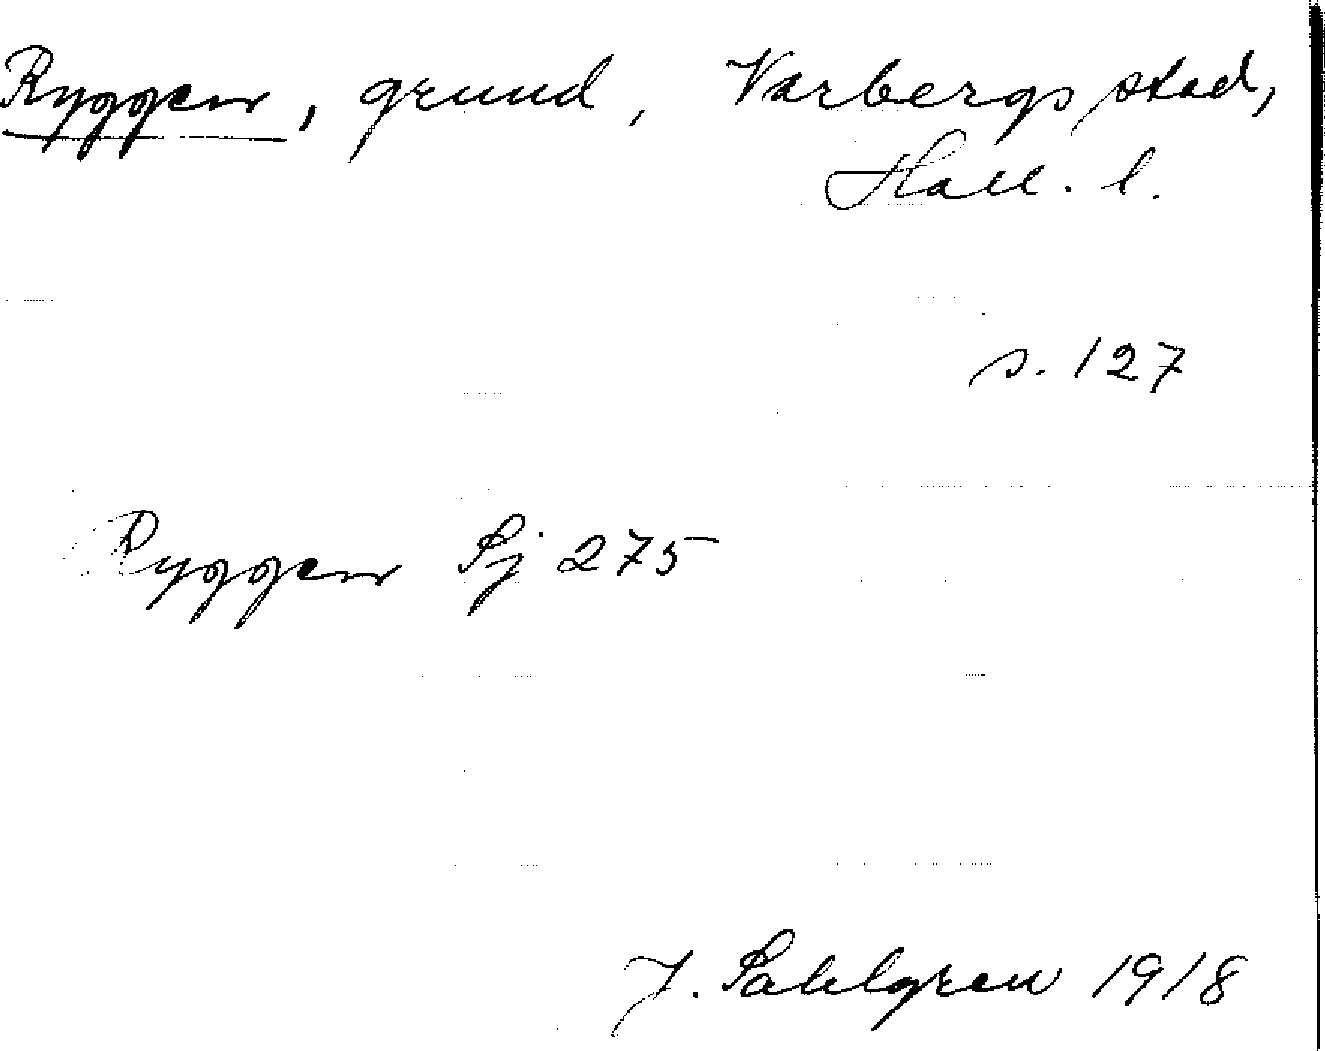 Ryggen, grund, Varbergs stad,
Hall. l.
s. 127
Ryggen Sj 275
J. Sahlgren 1918